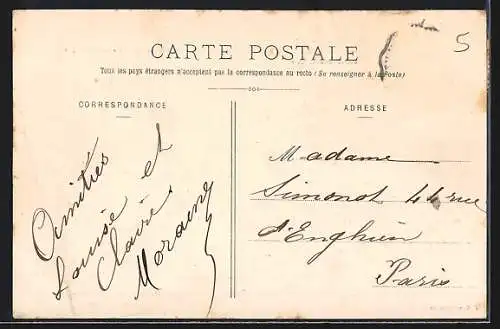 5
CARTE POSTALE
Tous les pays étrangers n'acceptent pas la correspondance au recto (Se renseigner à la Poste)
CORRESPONDANCE
Amitiés
Louise et
Claire
ADRESSE
Madame
Simonot 44 rue
d'Enghien
Paris